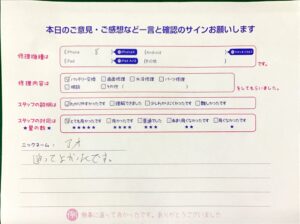 本日のご意見・ご感想など一言と確認のサインお願いします
修理機種は
iPhone 8
Android
iPad
その他
です。
修理内容は
バッテリー交換 画面修理 水没修理 パーツ修理
相談 その他
をしてもらいました。
スタッフの説明は
わかりやすかったです 理解できました 少しわかりにくかったです 難しかったです
スタッフの対応は
★星の数★
とても良かったです 良かったです 普通でした あまり良くなかったです 良くなかったです
★★★★★ ★★★★ ★★★ ★★ ★
ニックネーム：
直ってよかったです。
無事に直って良かったです。ありがとうございました